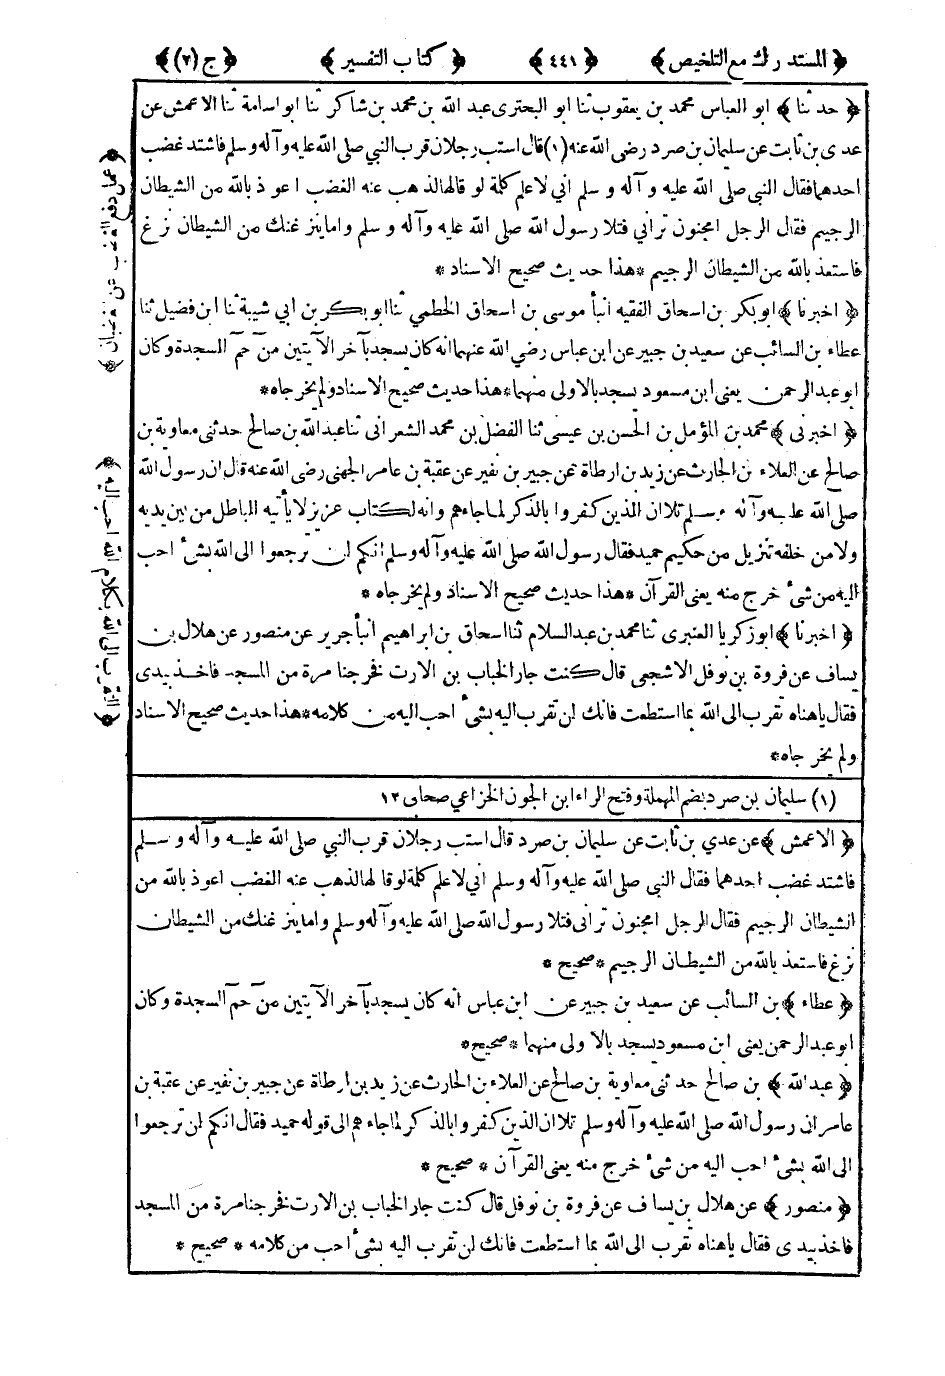 ﴿ المستدرك مع التلخيص ﴾ ﴿ ٤٤١ ﴾ ﴿ كتاب التفسير ﴾ ﴿ ج (٢) ﴾
﴿ حدثنا ﴾ ابو العباس محمد بن يعقوب ثنا ابو البحترى عبد الله بن محمد بن شاكر ثنا ابو اسامة ثنا الاعمش عن
عدى بن ثابت عن سليمان بن صرد رضى الله عنه (١) قال استب رجلان قرب النبي صلى الله عليه وآله وسلم فاشتد غضب
احدهما فقال النبى صلى الله عليه وآله وسلم اني لاعلم كلمة لو قالها لذهب عنه الغضب اعوذ بالله من الشيطان
الرجيم فقال الرجل امجنون ترانى فتلا رسول الله صلى الله عليه وآله وسلم واما ينزغنك من الشيطان نزغ
فاستعذ بالله من الشيطان الرجيم * هذا حديث صحيح الاسناد *
﴿ اخبرنا ﴾ ابو بكر بن اسحاق الفقيه انبأ موسى بن اسحاق الخطمي ثنا ابو بكر بن ابي شيبة ثنا ابن فضيل ثنا
عطاء بن السائب عن سعيد بن جبير عن ابن عباس رضي الله عنهما انه كان يسجد بآخر الآيتين من حم السجدة وكان
ابو عبد الرحمن يعنى ابن مسعود يسجد بالاولى منهما * هذا حديث صحيح الاسناد ولم يخرجاه *
﴿ اخبرنى ﴾ محمد بن المؤمل بن الحسن بن عيسى ثنا الفضل بن محمد الشعرانى ثنا عبد الله بن صالح حدثنى معاوية بن
صالح عن العلاء بن الحارث عن زيد بن ارطاة عن جبير بن نفير عن عقبة بن عامر الجهنى رضى الله عنه قال ان رسول الله
صلى الله عليه وآله وسلم تلا ان الذين كفروا بالذكر لما جاءهم وانه لكتاب عزيز لا يأتيه الباطل من بين يديه
ولا من خلفه تنزيل من حكيم حميد فقال رسول الله صلى الله عليه وآله وسلم انكم لن ترجعوا الى الله بشئ احب
اليه من شئ خرج منه يعنى القرآن * هذا حديث صحيح الاسناد ولم يخرجاه *
﴿ اخبرنا ﴾ ابو زكريا العنبرى ثنا محمد بن عبد السلام ثنا اسحاق بن ابراهيم انبأ جرير عن منصور عن هلال بن
يساف عن فروة بن نوفل الاشجعى قال كنت جار الخباب بن الارت فخرجنا مرة من المسجد فاخذ بيدى
فقال ياهناه تقرب الى الله بما استطعت فانك لن تقرب اليه بشئ احب اليه من كلامه * هذا حديث صحيح الاسناد
ولم يخرجاه *
(١) سليمان بن صرد بضم المهملة وفتح الراء ابن الجون الخزاعي صحابى ١٢
﴿ الاعمش ﴾ عن عدي بن ثابت عن سليمان بن صرد قال استب رجلان قرب النبي صلى الله عليه وآله وسلم
فاشتد غضب احدهما فقال النبى صلى الله عليه وآله وسلم اني لاعلم كلمة لو قالها لذهب عنه الغضب اعوذ بالله من
الشيطان الرجيم فقال الرجل امجنون ترانى فتلا رسول الله صلى الله عليه وآله وسلم واما ينزغنك من الشيطان
نزغ فاستعذ بالله من الشيطان الرجيم * صحيح *
﴿ عطاء ﴾ بن السائب عن سعيد بن جبير عن ابن عباس انه كان يسجد بآخر الآيتين من حم السجدة وكان
ابو عبد الرحمن يعنى ابن مسعود يسجد بالاولى منهما * صحيح *
﴿ عبد الله ﴾ بن صالح حدثنى معاوية بن صالح عن العلاء بن الحارث عن زيد بن ارطاة عن جبير بن نفير عن عقبة بن
عامر ان رسول الله صلى الله عليه وآله وسلم تلا ان الذين كفروا بالذكر لما جاءهم الى قوله حميد فقال انكم لن ترجعوا
الى الله بشئ احب اليه من شئ خرج منه يعنى القرآن * صحيح *
﴿ منصور ﴾ عن هلال بن يساف عن فروة بن نوفل قال كنت جار الخباب بن الارت فخرجنا مرة من المسجد
فاخذ بيدى فقال ياهناه تقرب الى الله بما استطعت فانك لن تقرب اليه بشئ احب من كلامه * صحيح *
﴿ عن غضبان ﴾
﴿ التقرب الى الله بكلام الله احب اليه ﴾